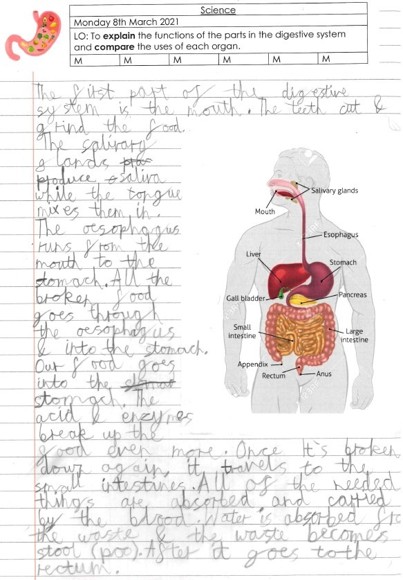 Science
Monday 8th March 2021
LO: To explain the functions of the parts in the digestive system
and compare the uses of each organ.
M M M M M
The first part of the digestive
system is the mouth. The teeth cut &
grind the food.
The salivary
glands
produce saliva
while the tongue
mixes them in.
The oesophagus
runs from the
mouth to the
stomach. All the
broken food
goes through
the oesophagus
& into the stomach.
Our food goes
into the
stomach. The
acid & enzymes
break up the
food even more. Once it's broken
down again, it travels to the
small intestines. All of the needed
things are absorbed and carried
by the blood. Water is absorbed fro
the waste & the waste becomes
stool (poo). After it goes to the
rectum.
Salivary glands
Mouth
Esophagus
Liver
Stomach
Gall bladder
Pancreas
Small
intestine
Large
intestine
Appendix
Rectum
Anus